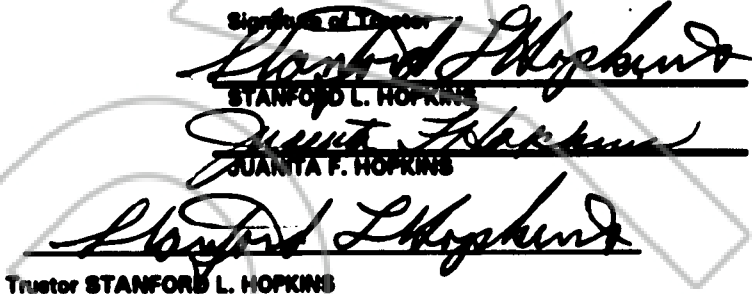 Signature of Trustor
Stanford L Hopkins
STANFORD L. HOPKINS
Juanita F Hopkins
JUANITA F. HOPKINS
Stanford L Hopkins
Trustor STANFORD L. HOPKINS